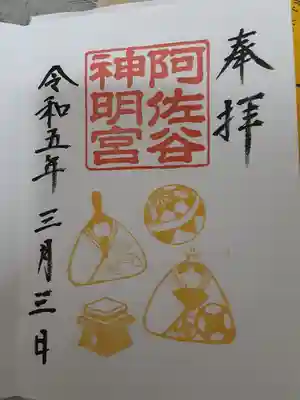 奉拝
阿佐谷
神明宮
令和五年 三月三日